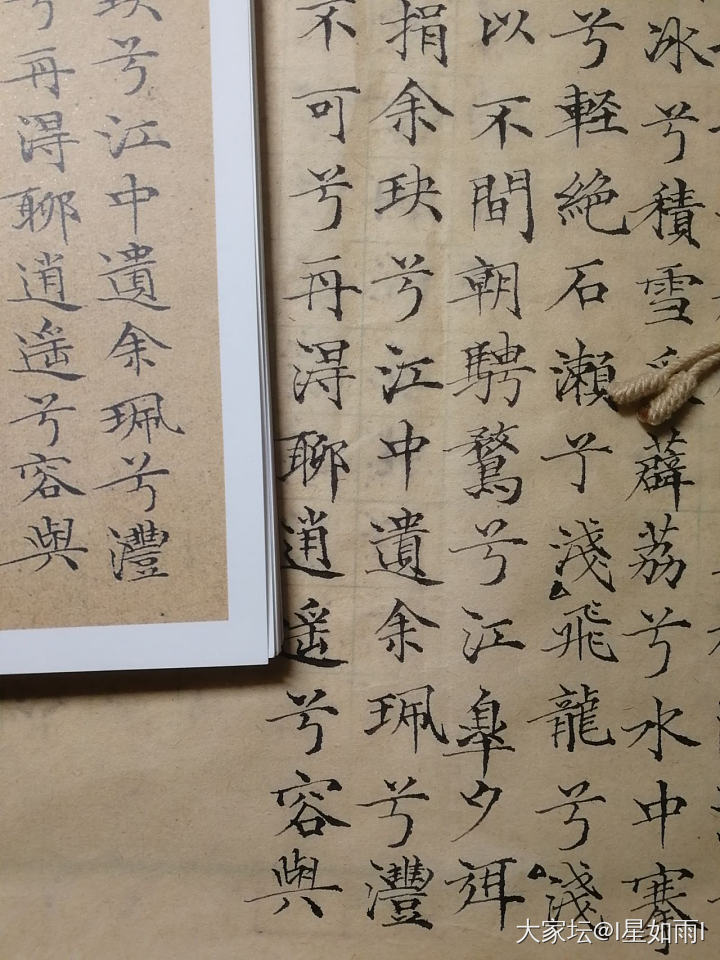 冰兮積雪采薜荔兮水中搴
兮軽絶石瀨兮淺飛龍兮淺
以不間朝騁騖兮江皐夕弭
捐余玦兮江中遺余珮兮灃
不可兮再淂聊逍遥兮容與
玦兮江中遺余珮兮灃
兮再淂聊逍遥兮容與
大家坛@l星如雨l